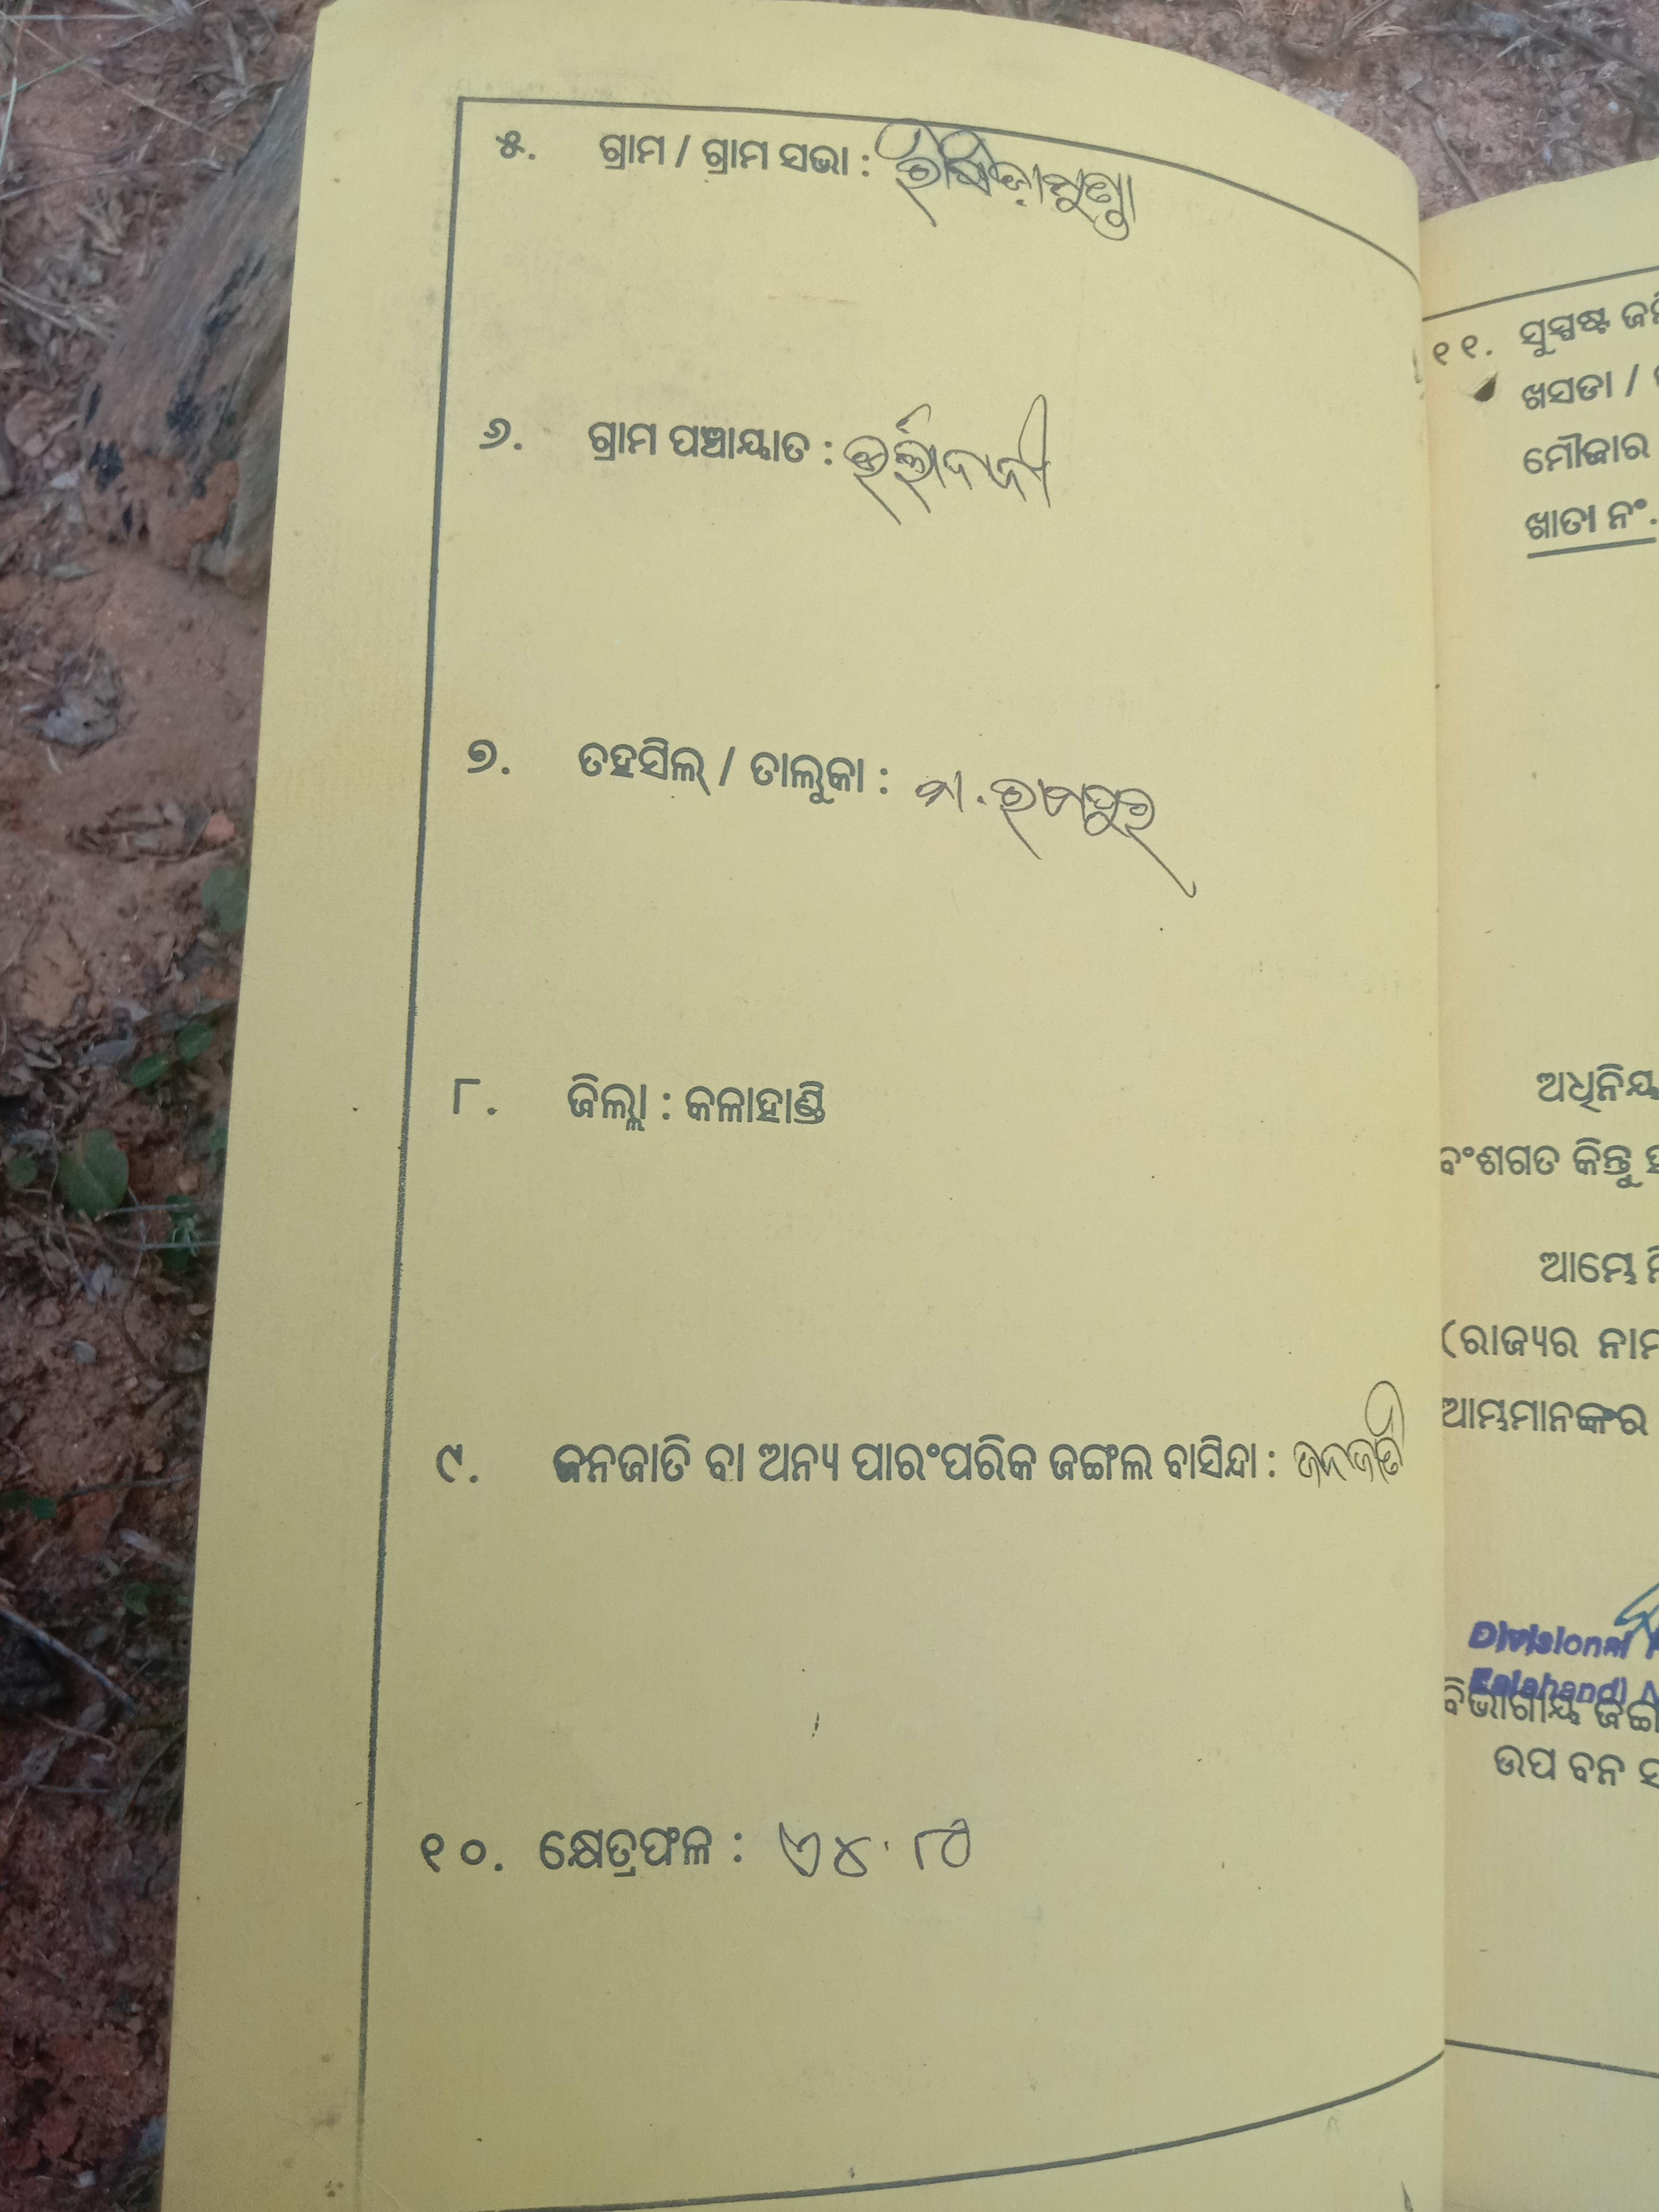 ୫. ଗ୍ରାମ / ଗ୍ରାମ ସଭା :
୬. ଗ୍ରାମ ପଞ୍ଚାୟାତ :
୭. ତହସିଲ୍ / ତାଲୁକା : ମ. ରାମପୁର
୮. ଜିଲ୍ଲା : କଳାହାଣ୍ଡି
୯. ଜନଜାତି ବା ଅନ୍ୟ ପାରଂପରିକ ଜଙ୍ଗଲ ବାସିନ୍ଦା : ଜନଜାତି
୧୦. କ୍ଷେତ୍ରଫଳ :
୧୧. ସୁସ୍ପଷ୍ଟ
ଖସଡା /
ମୌଜାର
ଖାତା ନଂ.
ବଂଶଗତ କିନ୍ତୁ
ଆମ୍ଭେ
(ରାଜ୍ୟର ନାମ
ଆମ୍ଭମାନଙ୍କର
Divisional
Kalahandi
ବିଭାଗୀୟ
ଉପ ବନ